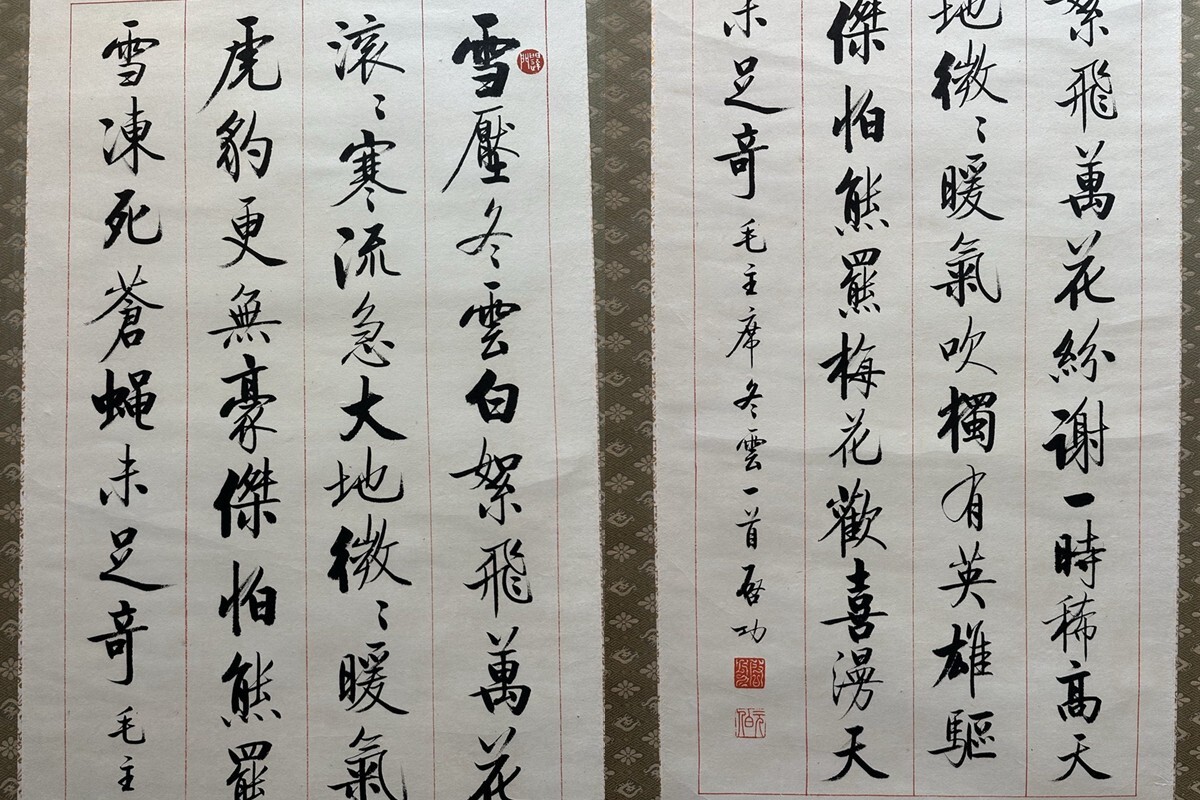 雪壓冬雲白絮飛萬花
滾〻寒流急大地微〻暖氣
虎豹更無豪傑怕熊羆
雪凍死蒼蠅未足奇 毛主
絮飛萬花紛謝一時稀高天
地微〻暖氣吹獨有英雄驅
傑怕熊羆梅花歡喜漫天
未足奇 毛主席冬雲一首 启功